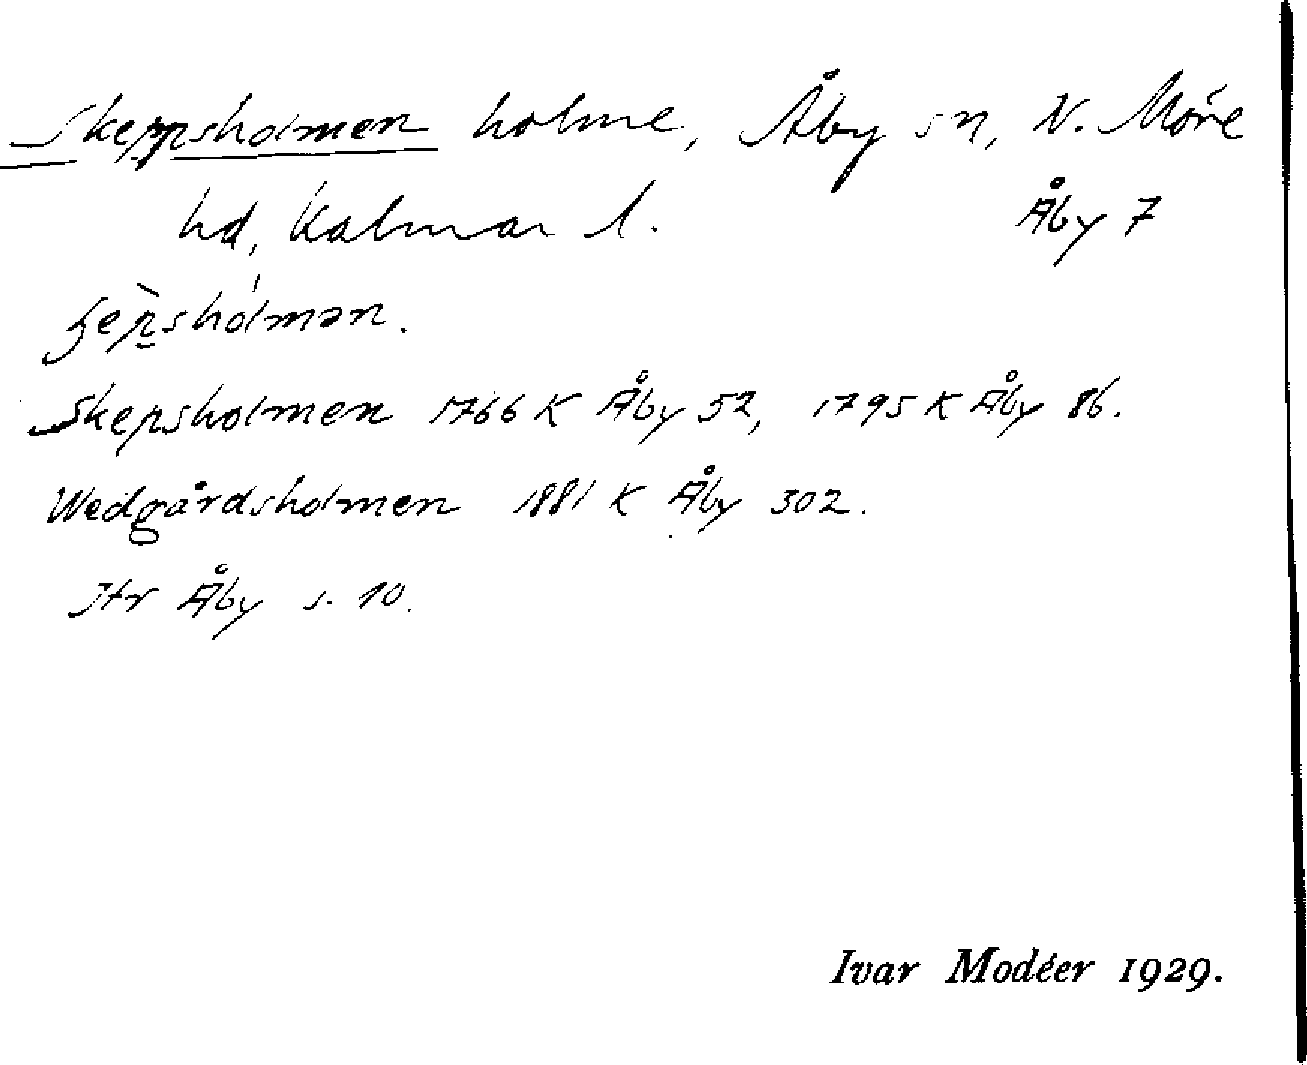 Skeppsholmen holme, Åby sn, N. Möre
hd, Kalmar l. Åby 7
Skepsholmen 1766 K Åby 52, 1795 K Åby 86.
Wedgårdsholmen 1881 K Åby 302.
Jtr Åby s. 10.
Ivar Modéer 1929.